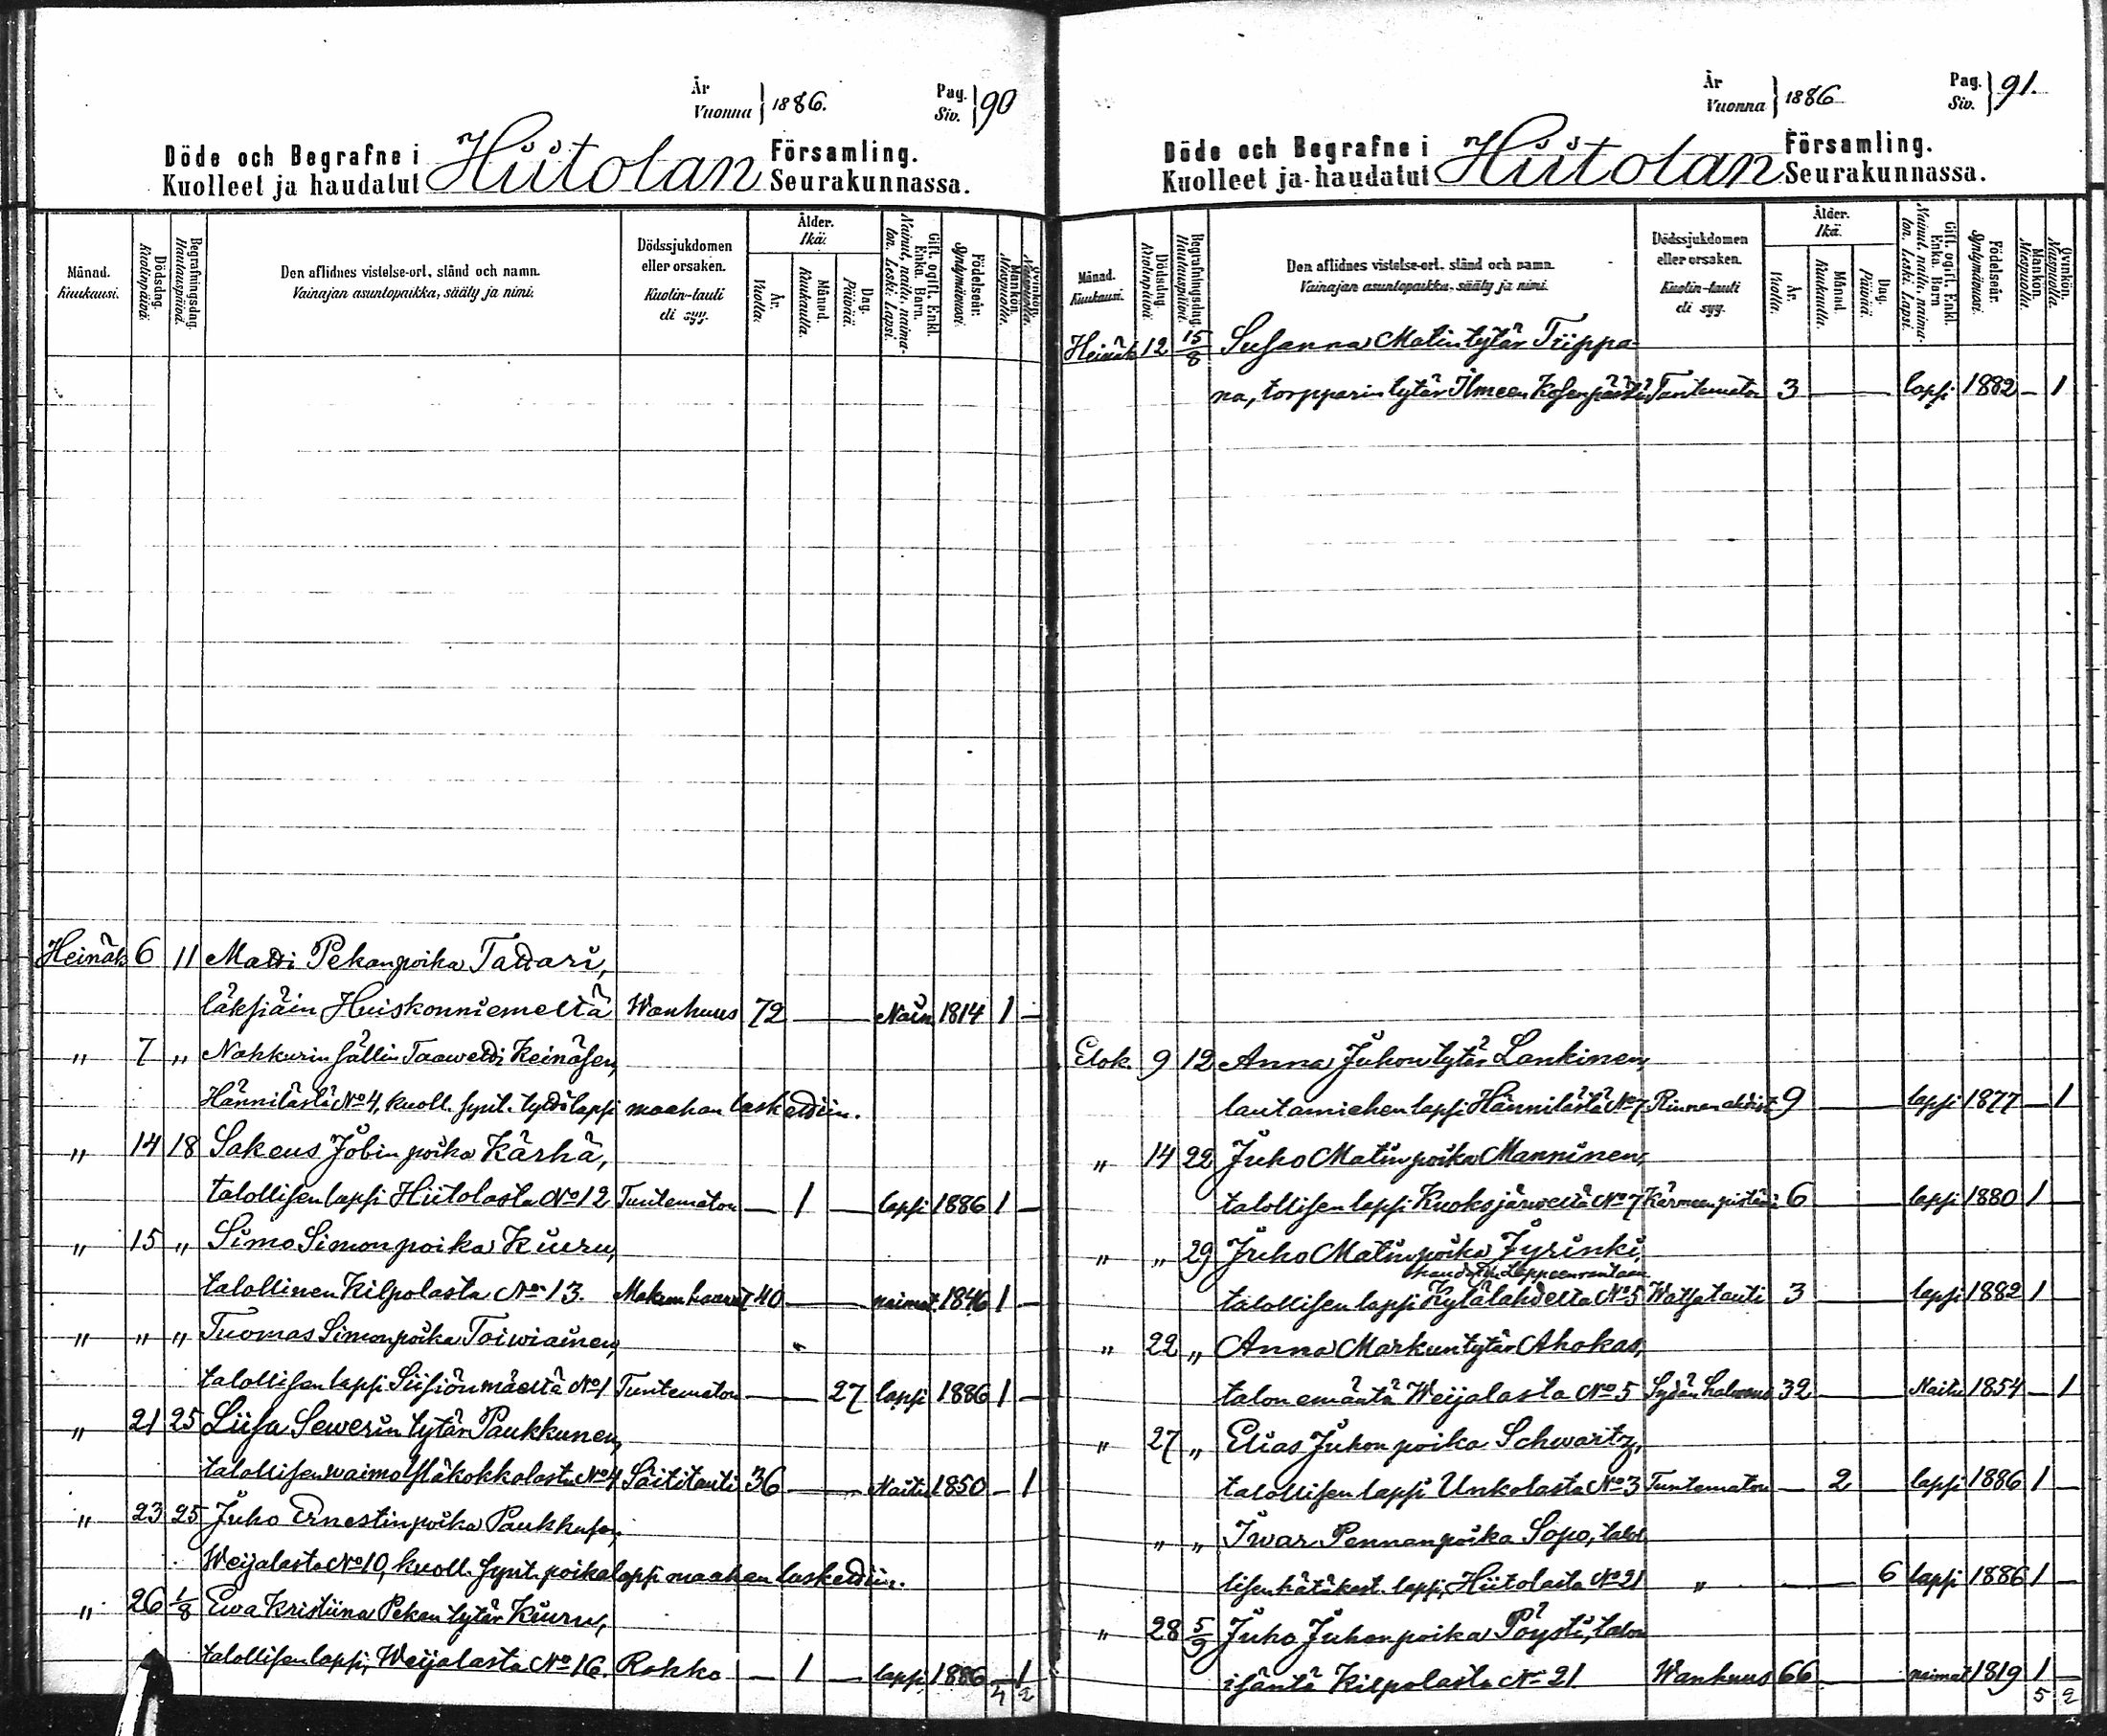 År
Vuonna } 1886.
Pag.
Siv. } 90
Döde och Begrafne i Hiitolan Församling.
Kuolleet ja haudatut Seurakunnassa.
Månad.
Kuukausi.
Dödsdag.
Kuolinpäivä.
Begrafningsdag.
Hautauspäivä.
Den aflidnes vistelse-ort, stånd och namn.
Vainajan asuntopaikka, sääty ja nimi.
Dödssjukdomen
eller orsaken.
Kuolin-tauti
eli syy.
Ålder.
Ikä.
År.
Vuotta.
Månad.
Kuukautta.
Dag.
Päivää.
Gift, ogift, Enkl.
Enka. Barn.
Nainut, naitu, naima-
ton. Leski. Lapsi.
Födelseår.
Syntymävuosi.
Mankön.
Miespuolia.
Qvinkön.
Naispuolia.
Heinäk 6 11 Matti Pekanpoika Tattari,
läksiäin Huiskonniemeltä Wanhuus 72 — — Nain 1814 1 —
" 7 " Nahkurin sällin Taawetti Keinäsen,
Hännilästä No 4, kuoll. synt. tyttölapsi maahan laskettiin.
" 14 18 Sakeus Jobin poika Kärhä,
talollisen lapsi Hiitolasta No 12 Tuntematon — 1 — lapsi 1886 1 —
" 15 " Simo Simonpoika Kiuru,
talollinen Kilpolasta No 13. 40 — — naimat 1846 1 —
" " " Tuomas Simonpoika Toiwiainen,
talollisen lapsi Siisiönmäeltä No 1 Tuntematon — — 27 lapsi 1886 1 —
" 21 25 Liisa Sewerin tytär Paukkunen,
talollisen waimo No 4 36 — — Naitu 1850 — 1
" 23 25 Juho Ernestinpoika Paukkusen,
Weijalasta No 10, kuoll. synt. poikalapsi maahan laskettiin.
" 26 1/8 Ewa Kristiina Pekan tytär Kiuru,
talollisen lapsi, Weijalasta No 16. Rokko — 1 — lapsi 1886 — 1
4 2
År
Vuonna } 1886
Pag.
Siv. } 91.
Döde och Begrafne i Hiitolan Församling.
Kuolleet ja haudatut Seurakunnassa.
Månad.
Kuukausi.
Dödsdag.
Kuolinpäivä.
Begrafningsdag.
Hautauspäivä.
Den aflidnes vistelse-ort, stånd och namn.
Vainajan asuntopaikka, sääty ja nimi.
Dödssjukdomen
eller orsaken.
Kuolin-tauti
eli syy.
Ålder.
Ikä.
År.
Vuotta.
Månad.
Kuukautta.
Dag.
Päivää.
Gift, ogift, Enkl.
Enka. Barn
Nainut, naitu, naima-
ton. Leski. Lapsi.
Födelseår.
Syntymävuosi.
Mankön.
Miespuolia.
Qvinkön.
Naispuolia.
Heinäk 12 15/8 Susanna Matintytär Tiippa-
na, torpparin tytär Ilmeen Tuntematon 3 — — lapsi 1882 — 1
Elok. 9 12 Anna Juhontytär Lankinen,
lautamiehen lapsi Hännilästä No 7 9 — — lapsi 1877 — 1
" 14 22 Juho Matinpoika Manninen,
talollisen lapsi Kuoksjärweltä No 7 Kärmeen 6 lapsi 1880 1 —
" " 29 Juho Matinpoika Jyrinki,
Lappeenrantaan
talollisen lapsi Kylälahdelta No 5 Watsatauti 3 lapsi 1882 1 —
" 22 " Anna Markuntytär Ahokas,
talon emäntä Weijalasta No 5 Sydän halwaus 32 Naitu 1854 — 1
" 27 " Elias Juhonpoika Schwartz,
talollisen lapsi Unkolasta No 3 Tuntematon — 2 lapsi 1886 1 —
" " Iwar Pennanpoika Sopo, talol
lisen lapsi, Hiitolasta No 21 " — 6 lapsi 1886 1 —
" 28 5/9 Juho Juhonpoika Pöysti, talon
isäntä Kilpolasta No 21 Wanhuus 66 naimat 1819 1 —
5 2